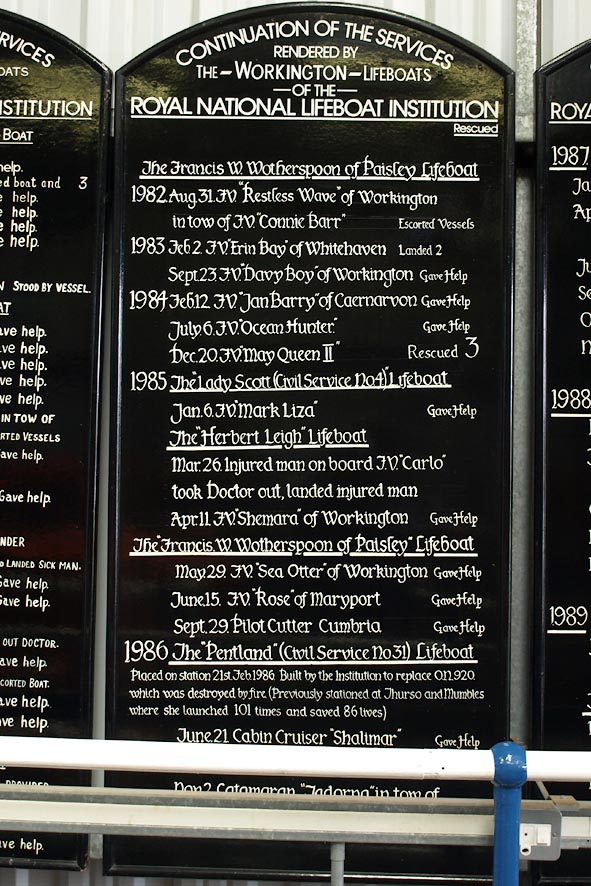 RVICES
OATS
NSTITUTION
BOAT
help.
ed boat and 3
e help.
e help.
e help.
e help.
N STOOD BY VESSEL.
AT
ave help.
ave help.
ave help.
ave help.
ve help.
IN TOW OF
ORTED VESSELS
ave help.
Gave help.
NDER
D LANDED SICK MAN.
Gave help.
Gave help.
OUT DOCTOR.
ave help.
CORTED BOAT.
ave help.
ave help.
ve help.
CONTINUATION OF THE SERVICES
RENDERED BY
THE-WORKINGTON-LIFEBOATS
-OF THE-
ROYAL NATIONAL LIFEBOAT INSTITUTION
Rescued
The Francis W. Wotherspoon of Paisley Lifeboat
1982. Aug. 31. F.V. "Restless Wave" of Workington
in tow of F.V. "Connie Barr" Escorted Vessels
1983 Feb 2. F.V. "Erin Bay" of Whitehaven Landed 2
Sept. 23 F.V. "Davy Boy" of Workington Gave Help
1984 Feb. 12. F.V. "Jan Barry" of Caernarvon Gave Help
July. 6. F.V. "Ocean Hunter." Gave Help
Dec. 20. F.V. "May Queen II" Rescued 3
1985 The "Lady Scott (Civil Service No 4)" Lifeboat
Jan. 6. F.V. "Mark Liza" Gave Help
The "Herbert Leigh" Lifeboat
Mar. 26. Injured man on board F.V. "Carlo"
took Doctor out, landed injured man
Apr. 11. F.V. "Shemara" of Workington Gave Help
The "Francis. W. Wotherspoon of Paisley" Lifeboat
May. 29. F.V. "Sea Otter" of Workington Gave Help
June. 15. F.V. "Rose" of Maryport Gave Help
Sept. 29. Pilot Cutter Cumbria Gave Help
1986 The "Pentland" (Civil Service No 31) Lifeboat
Placed on station 21st. Feb 1986. Built by the Institution to replace O.N. 920.
which was destroyed by fire (Previously stationed at Thurso and Mumbles
where she launched 101 times and saved 86 lives)
June. 21. Cabin Cruiser "Shalimar" Gave Help
Nov 2. Catamaran "Jadorna" in tow of
ROYA
1987
Ja
Ap
Ju
Se
O
1988
1989